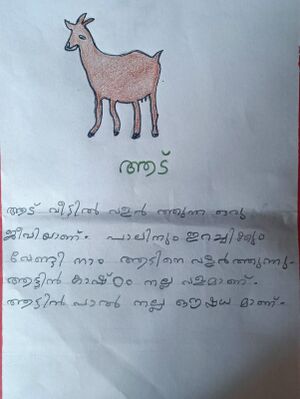 ആട്
ആട് വീട്ടിൽ വളർ ത്തുന്ന ഒരു
ജീവിയാണ്. പാലിനും ഇറച്ചിക്കും
വേണ്ടി നാം ആടിനെ വളർത്തുന്നു.
ആട്ടിൻ കാഷ്ഠം നല്ല വളമാണ്.
ആട്ടിൻ പാൽ നല്ല ഔഷധ മാണ്.